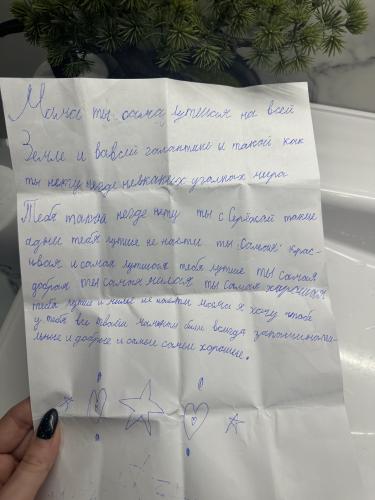 Мама ты сама лутшая на всей
Земле и вовсей галактике и такой как
ты нету негде невкаких уголных мира
Тебя такой негде нету ты с берёжой такие
адни тебя лутше не насти ты самая крас-
ивая и самая лутшая тебя лутше ты самая
добрая ты самая милая ты самая хорошая
тебя лутше и милее не насти мама я хочу чтобы
у тебя все были всегда запоминатель-
льные и добрые и самые самые хорошие.